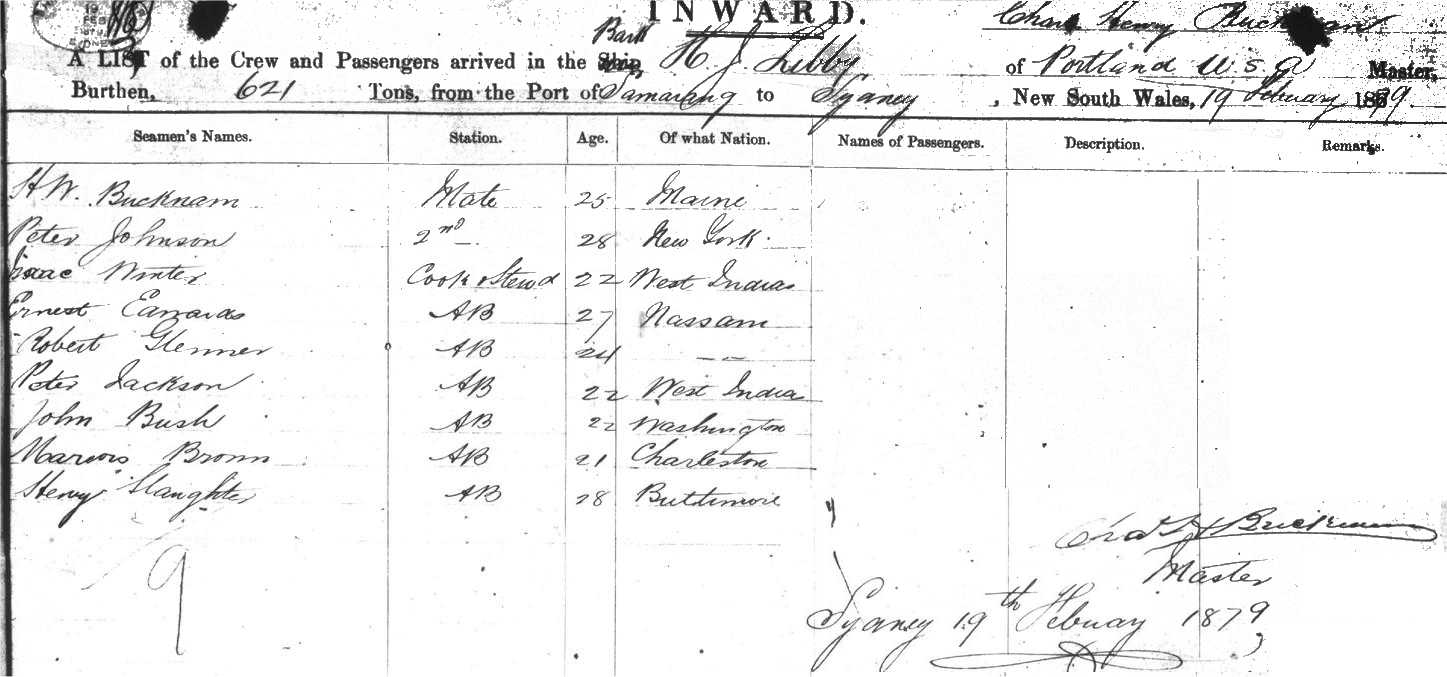 19
FEB
INWARD.
Chas Henry Bucknam
Bark
A LIST of the Crew and Passengers arrived in the Ship, H. J. Libby, of Portland U.S.A Master,
Burthen, 621 Tons, from the Port of Samarang to Sydney, New South Wales, 19 February 1879
Seamen's Names. Station. Age. Of what Nation. Names of Passengers. Description. Remarks.
H W. Bucknam Mate 25 Maine
Peter Johnson 2nd 28 New York.
Isaac Winter Cook & Stewd 22 West Indias
Ernest Edwards AB 27 Nassam
Robert Glenner AB 24 — —
Peter Jackson AB 22 West India
John Bush AB 22 Washington
Marcus Brown AB 21 Charleston
Henry Slaughter AB 28 Bultimore
Chas H Bucknam
Master
9
Sydney 19th Febuay 1879